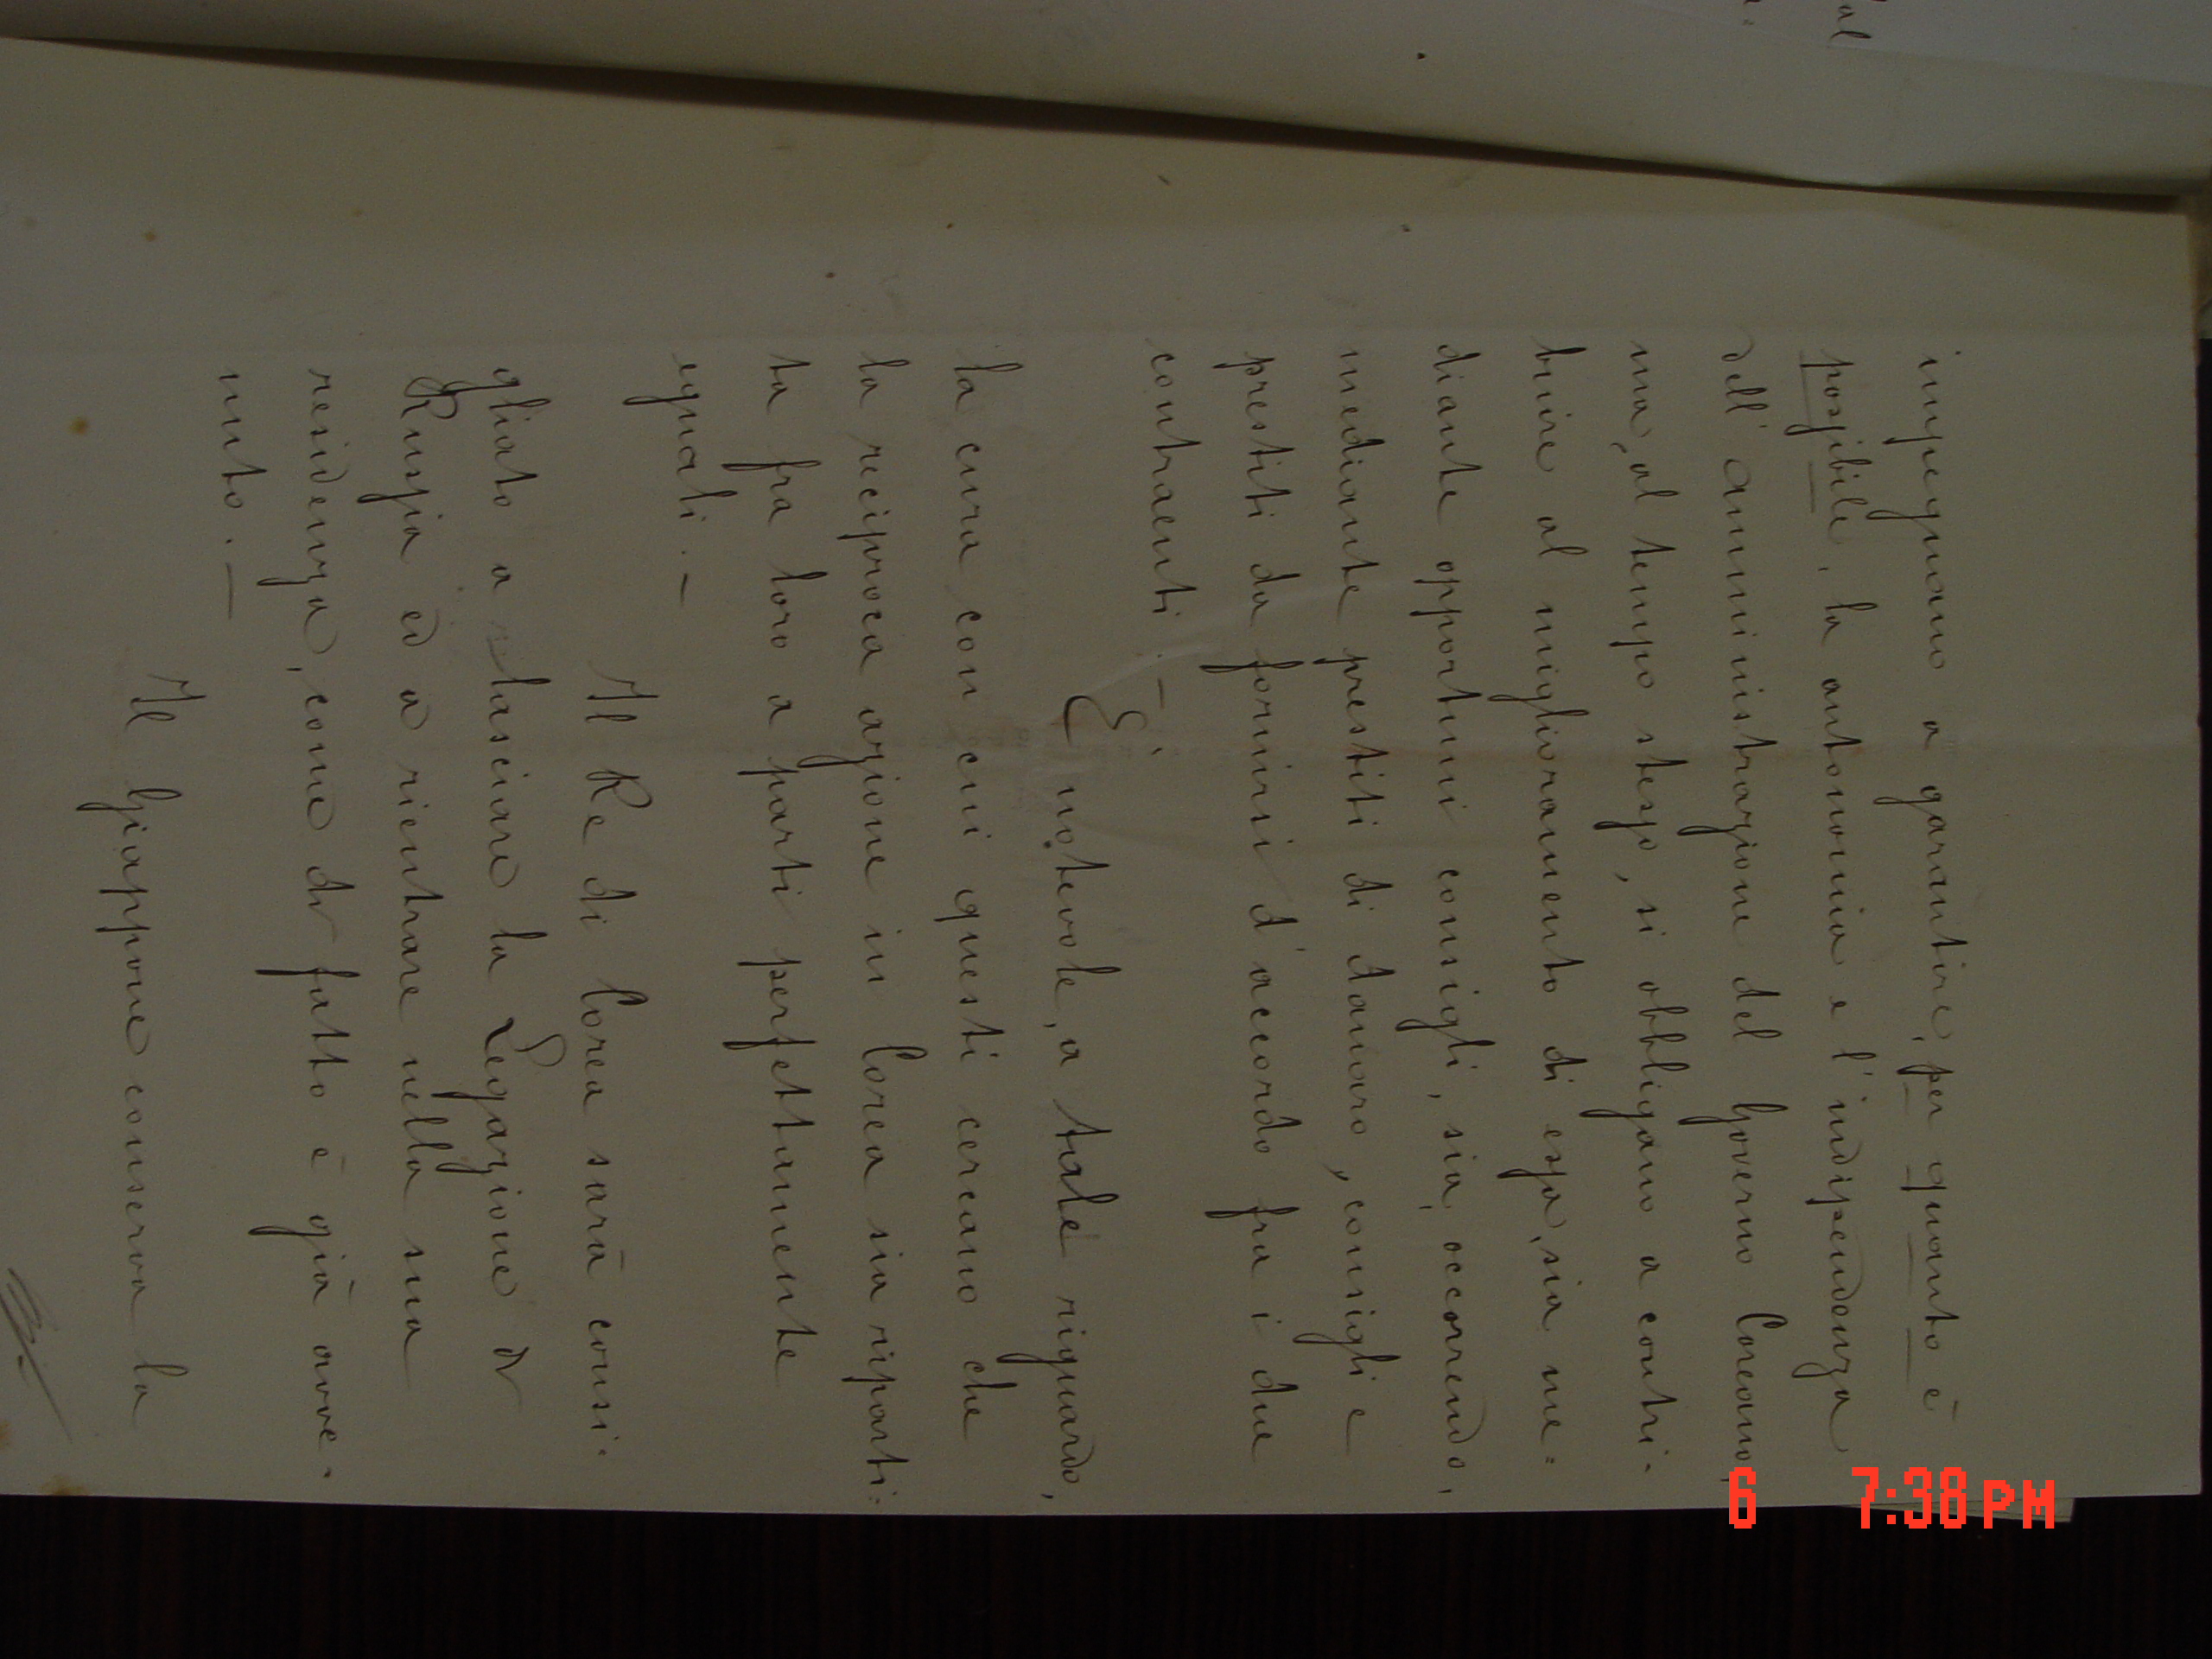 impegnano a garantire, per quanto è
possibile, la autonomia e l'indipendenza
dell'amministrazione del Governo Coreano,
ma, al tempo stesso, si obbligano a contri-
buire al miglioramento di essa, sia me=
diante opportuni consigli, sia, occorrendo,
mediante prestiti di danaro, consigli e
prestiti da fornirsi d'accordo fra i due
contraenti. —
È notevole, a tale riguardo,
la cura con cui questi cercano che
la reciproca azione in Corea sia riparti=
ta fra loro a parti perfettamente
eguali. —
Il Re di Corea sarà consi=
gliato a lasciare la Legazione di
Russia ed a rientrare nella sua
residenza, come di fatto è già avve=
nuto. —
Il Giappone conserva la
al
6 7:38 PM